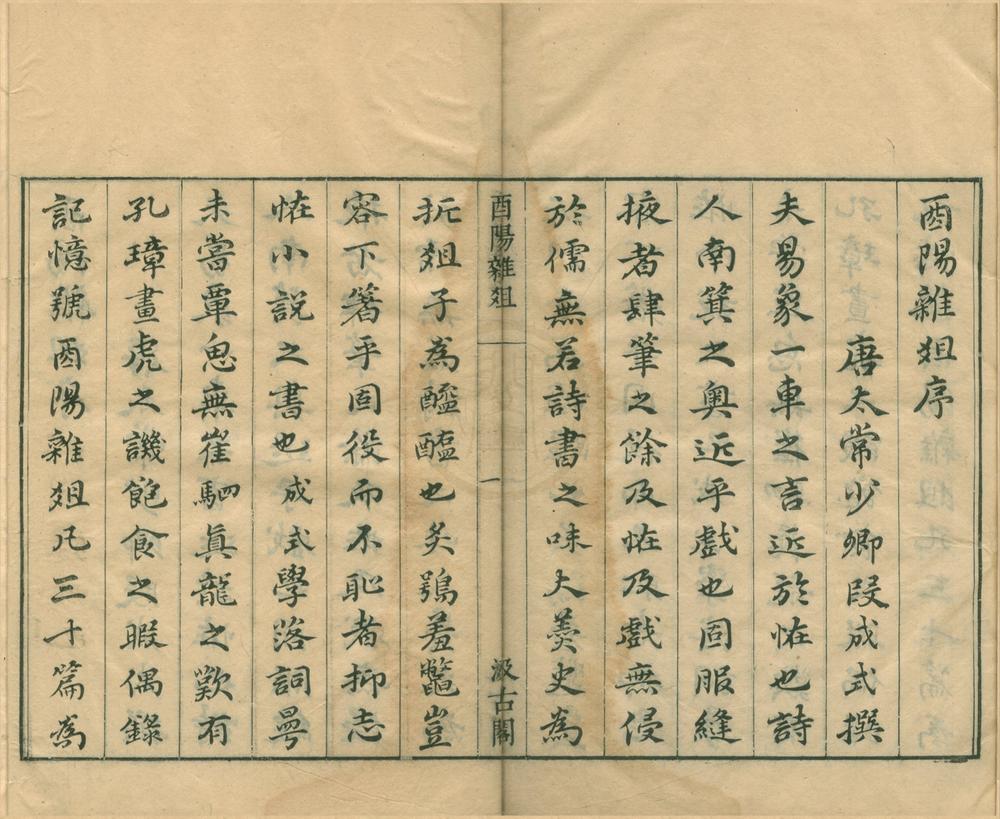 酉陽雜俎序
唐太常少卿段成式撰
夫易象一車之言近於恠也詩
人南箕之奧近乎戲也固服縫
掖者肆筆之餘及恠及戲無侵
於儒無若詩書之味大羹史為
折俎子為醯醢也炙鴞羞鼈豈
容下箸乎固役而不恥者抑志
恠小說之書也成式學落詞曼
未嘗覃思無崔駰真龍之歎有
孔璋畫虎之譏飽食之暇偶錄
記憶號酉陽雜俎凡三十篇為
酉陽雜俎
一
汲古閣